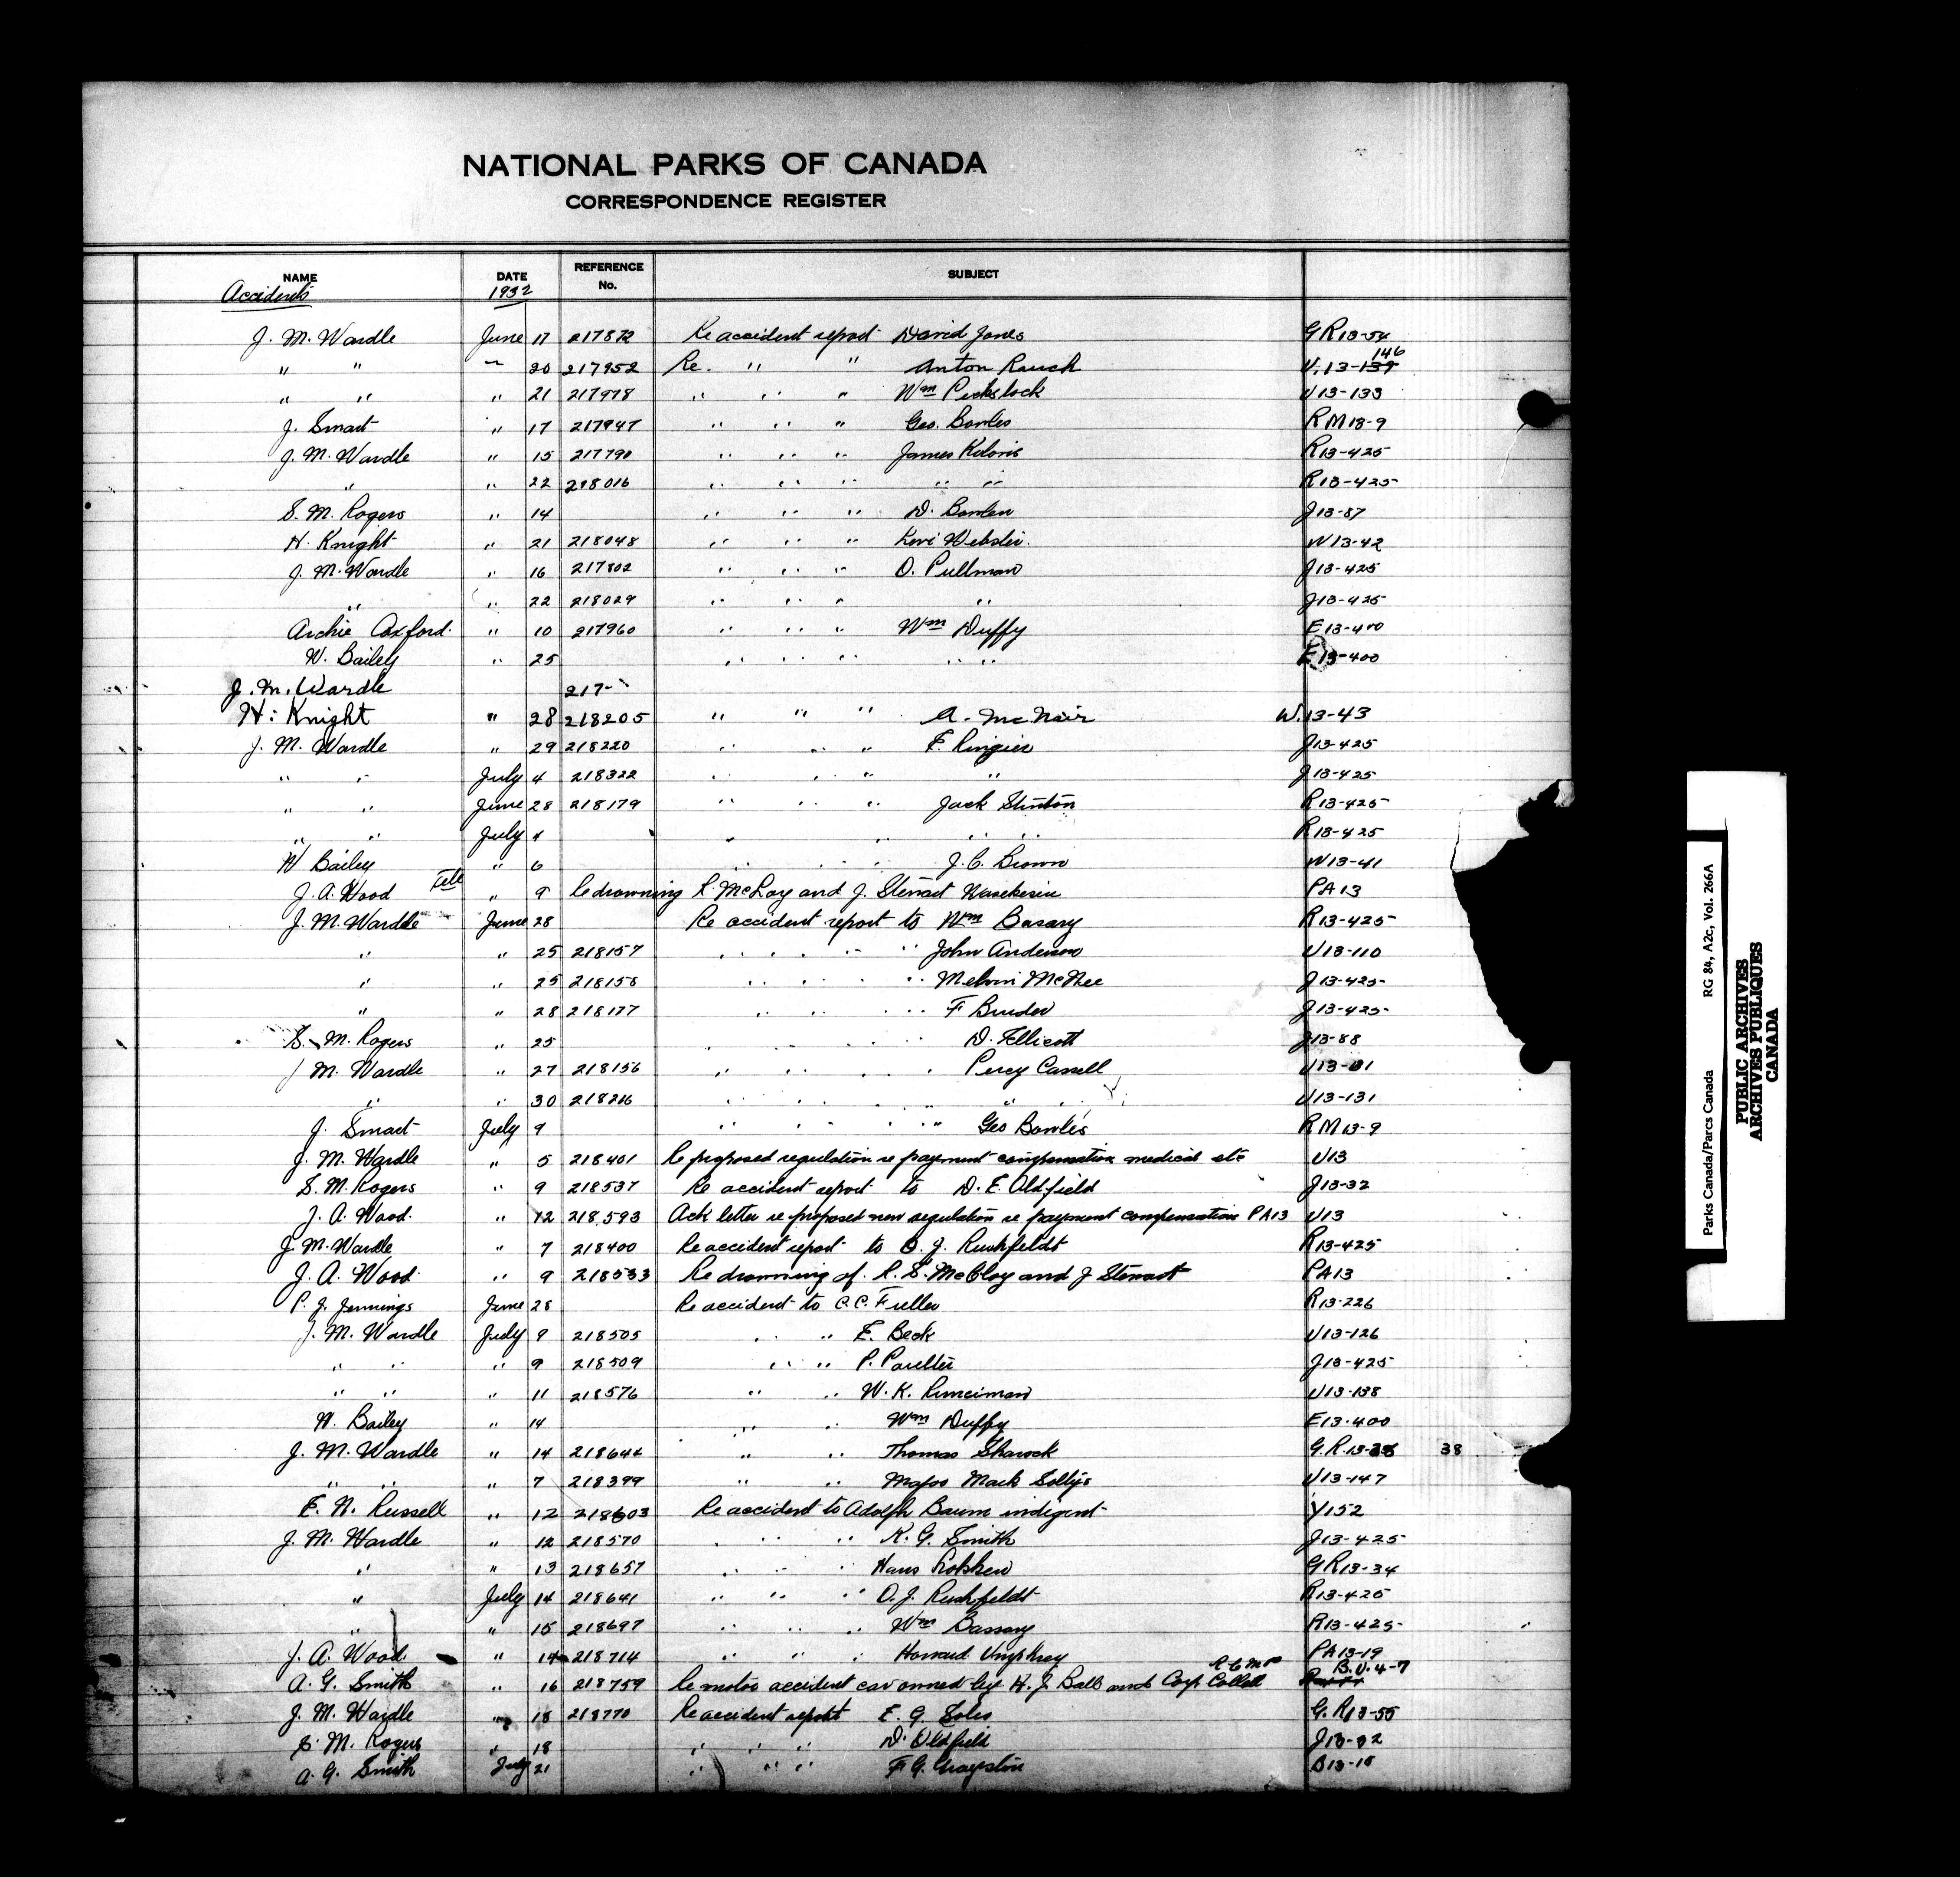 NATIONAL PARKS OF CANADA
CORRESPONDENCE REGISTER
NAME DATE REFERENCE No. SUBJECT
Accidents 1932
J. M. Wardle June 17 217872 Re accident report David Jones GR13-54
" " " 20 217952 Re. " " Anton Rauch U.13-139 146
" " " 21 217978 " " " Wm U13-133
J. Smart " 17 217947 " " " Geo. Bowles RM13-9
J. M. Wardle " 15 217790 " " " James R13-425
" " 22 218016 " " " " " R13-425
S. M. Rogers " 14 " " " D. J13-87
H. Knight " 21 218048 " " " Levi Webster. W13-42
J. M. Wardle " 16 217802 " " " O. Pullman J13-425
" " 22 218029 " " " " J13-425
Archie Coxford. " 10 217960 " " " Wm Duffy E13-400
W. Bailey " 25 " " " " " E13-400
J. M. Wardle 217-
H. Knight " 28 218205 " " " A. McNair W.13-43
J. M. Wardle " 29 218220 " " " F. Ringier J13-425
" " July 4 218322 " " " " J13-425
" " June 28 218179 " " " Jack Stinton R13-425
" " July 4 " " " " R13-425
W Bailey " 6 " " " J. C. Brown W13-41
J. A. Wood Tele " 9 Re drowning R McLoy and J. Stewart Waskesiu PA13
J. M. Wardle June 28 Re accident report to Wm Basary R13-425
" " 25 218157 " " " " John Anderson U13-110
" " 25 218158 " " " " Melvin McNee J13-425
" " 28 218177 " " " " F Binder J13-425
S. M. Rogers " 25 " " " " D. Ellicott J13-88
J M. Wardle " 27 218156 " " " " Percy Cassell U13-
" " 30 218216 " " " " " " U13-131
J. Smart July 9 " " " " Geo Bowles RM13-9
J. M. Wardle " 5 218401 Re proposed regulation re payment compensation medical etc U13
S. M. Rogers " 9 218537 Re accident report to D. E. Oldfield J13-32
J. A. Wood. " 12 218593 Ack letter re proposed new regulation re payment compensation PA13 U13
J. M. Wardle " 7 218400 Re accident report to O. J. Rushfeldt R13-425
J. A. Wood. " 9 218533 Re drowning of R. S. McCloy and J Stewart PA13
P. J. Jennings June 28 Re accident to C. C. Fuller R13-226
J. M. Wardle July 9 218505 " " E. Beck U13-126
" " " 9 218509 " " P. J13-425
" " " 11 218576 " " W. K. Runciman U13-138
W. Bailey " 14 " " Wm Duffy E13-400
J. M. Wardle " 14 218644 " " Thomas Sharock G.R.13- 38
" " " 7 218399 " " Major Mack U13-147
E. N. Russell " 12 218603 Re accident to Adolph Baum indigent Y152
J. M. Wardle " 12 218570 " " " K. G. Smith J13-425
" " 13 218657 " " " Hans Lokken GR13-34
" July 14 218641 " " " O. J. Rushfeldt R13-425
" " 15 218697 " " " Wm Bassary R13-425
J. A. Wood. " 14 218714 " " " Howard Umphrey PA13-19
A. G. Smith " 16 218759 Re motor accident car owned by H. J. Ball and Corp R C M P B.U.4-7
J. M. Wardle " 18 218770 Re accident report E. G. Soles G.R13-55
S. M. Rogers " 18 " " " D. Oldfield J13-32
A. G. Smith July 21 " " " F G. Grayston B13-15
PUBLIC ARCHIVES
ARCHIVES PUBLIQUES
CANADA
Parks Canada/Parcs Canada RG 84, A2c, Vol. 266A